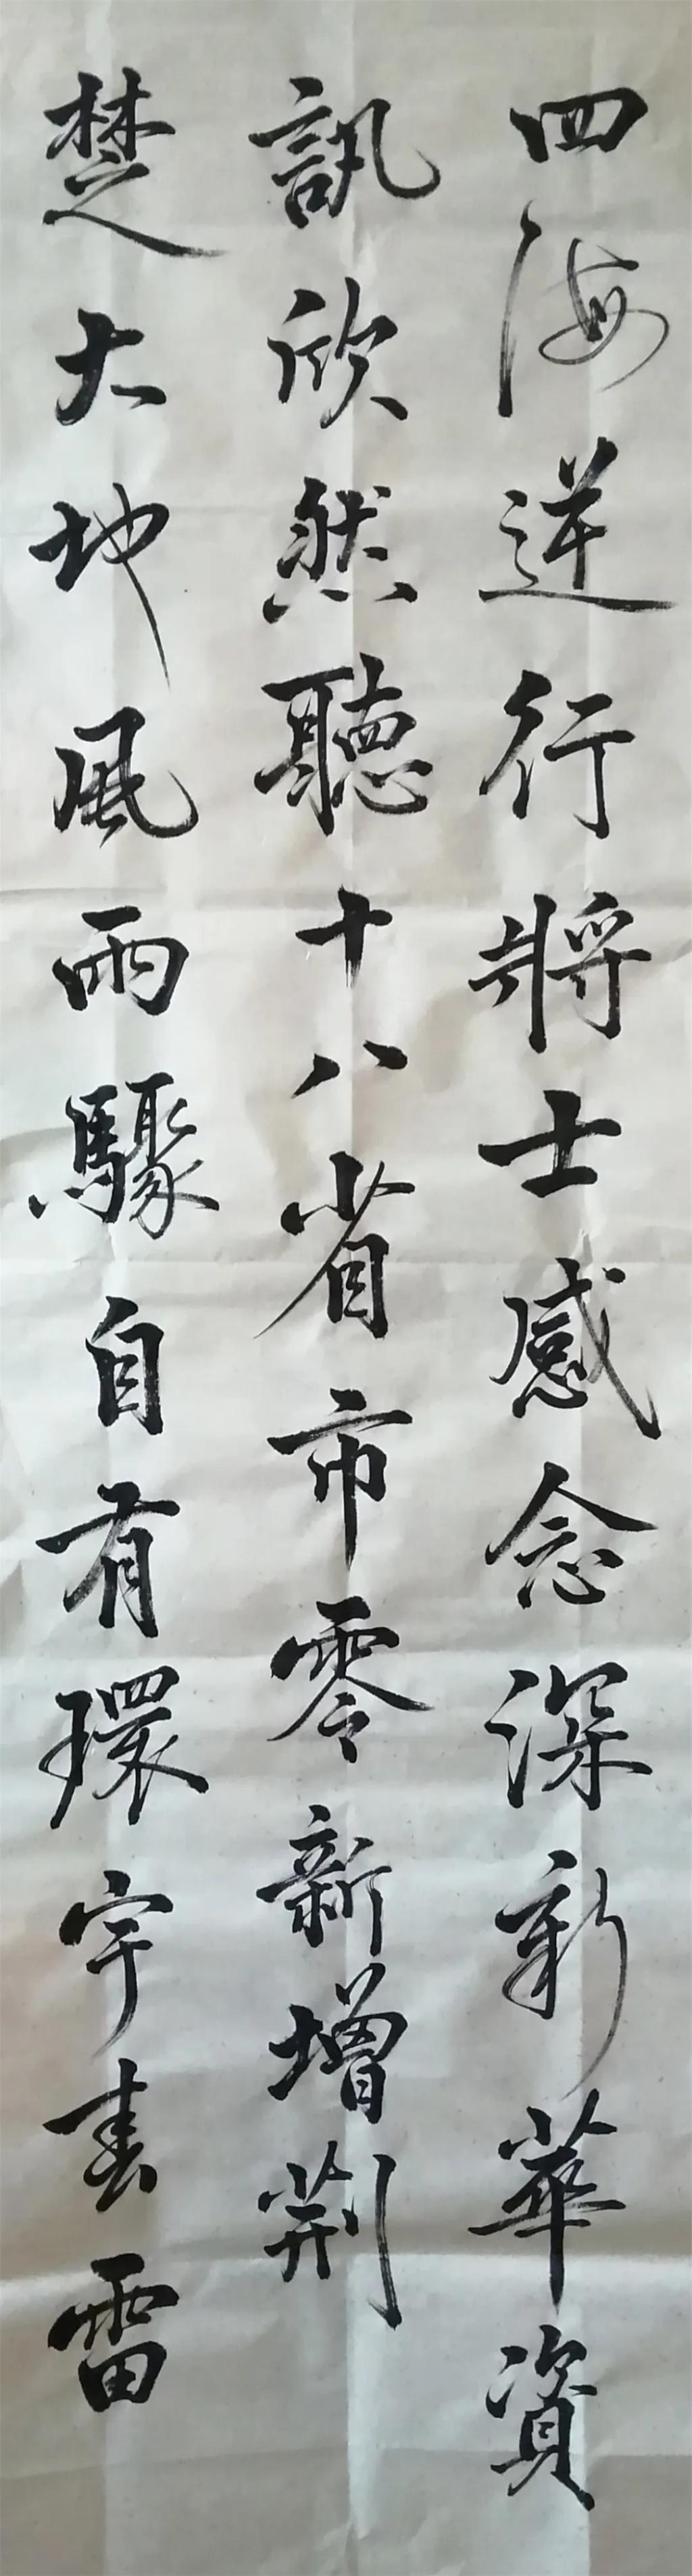 四海逆行將士感念深新華資
訊欣然聽十八省市零新增荆
楚大地風雨驟自有環宇春雷